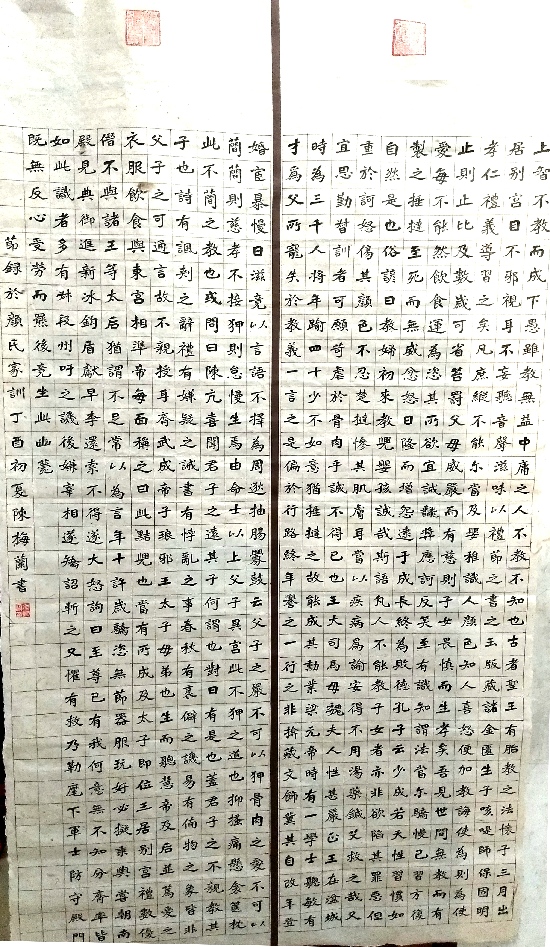 上智不教而成下愚雖教無益中庸之人不教不知也古者聖王有胎教之法懷子三月出
居別宮目不邪視耳不妄聽音聲滋味以禮節之書之玉版藏諸金匱生子咳嗁師保固明
孝仁禮義導習之矣凡庶縱不能爾當及嬰稚識人顏色知人喜怒便加教誨使為則為使
止則止比及數歲可省笞罰父母威嚴而有慈則子女畏慎而生孝矣吾見世間無教而有
愛每不能然飲食運為恣其所欲宜誡翻獎應訶反笑至有識知謂法當爾驕慢已習方復
製之捶撻至死而無威忿怒日隆而增怨逮于成長終為敗德孔子云少成若天性習慣如
自然是也俗諺曰教婦初來教兒嬰孩誠哉斯語凡人不能教子女者亦非欲陷其罪惡但
重於訶怒傷其顏色不忍楚撻慘其肌膚耳當以疾病為諭安得不用湯藥鍼艾救之哉又
宜思勤督訓者可願苛虐於骨肉乎誠不得已也王大司馬母魏夫人性甚嚴正王在湓城
時為三千人將年踰四十少不如意猶捶撻之故能成其勳業梁元帝時有一學士聰敏有
才為父所寵失於教義一言之是偏於行路終年譽之一行之非揜藏文飾冀其自改年登
婚宦暴慢日滋竟以言語不擇為周逖抽腸釁鼓云父子之嚴不可以狎骨肉之愛不可以
簡簡則慈孝不接狎則怠慢生焉由命士以上父子異宮此不狎之道也抑搔痛懸衾篋枕
此不簡之教也或問曰陳亢喜聞君子之遠其子何謂也對曰有是也蓋君子之不親教其
子也詩有諷刺之辭禮有嫌疑之誡書有悖亂之事春秋有衺僻之譏易有備物之象皆非
父子之可通言故不親授耳齊武成帝子琅邪王太子母弟也生而聰慧帝及后並篤愛之
衣服飲食與東宮相準帝每面稱之曰此黠兒也當有所成及太子即位王居別宮禮數優
僭不與諸王等太后猶謂不足常以為言年十許歲驕恣無節器服玩好必擬乘輿嘗朝南
殿見典御進新冰鉤盾獻早李還索不得遂大怒訽曰至尊已有我何意無不知分齊率皆
如此識者多有叔段州吁之譏後嫌宰相遂矯詔斬之又懼有救乃勒麾下軍士防守殿門
既無反心受勞而罷後竟坐此幽薨
節錄於顏氏家訓丁酉初夏陳梅蘭書